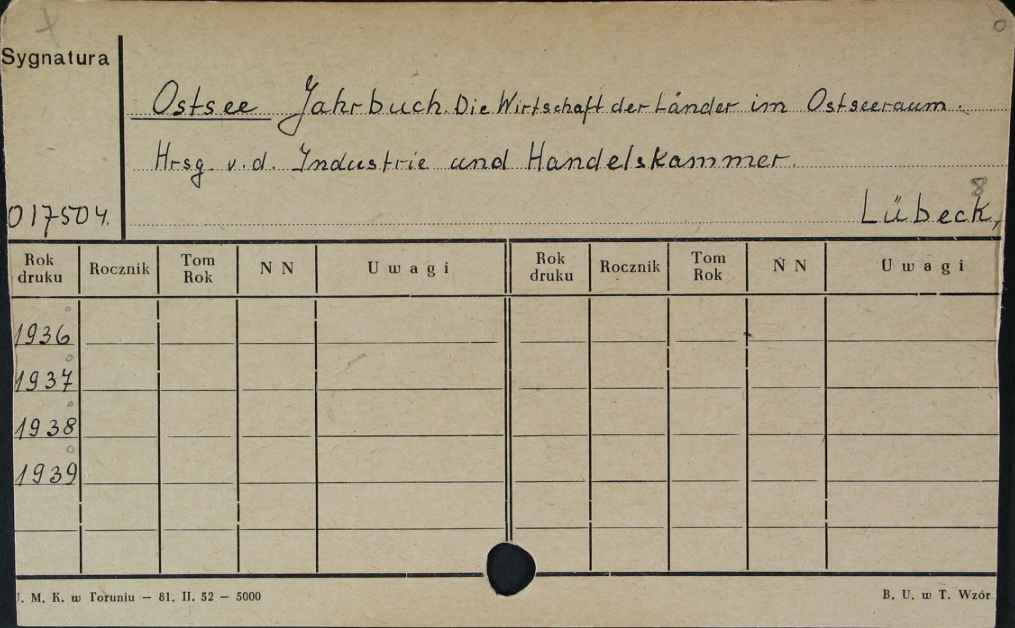 Sygnatura
Ostsee Jahrbuch. Die Wirtschaft der Länder im Ostseeraum.
Hrsg. v. d. Industrie und Handelskammer.
8
017504. Lübeck,
Rok druku Rocznik Tom Rok N N U w a g i Rok druku Rocznik Tom Rok N N U w a g i
1936
1937
1938
1939
U. M. K. w Toruniu — 61. II. 52 — 5000 B. U. w T. Wzór